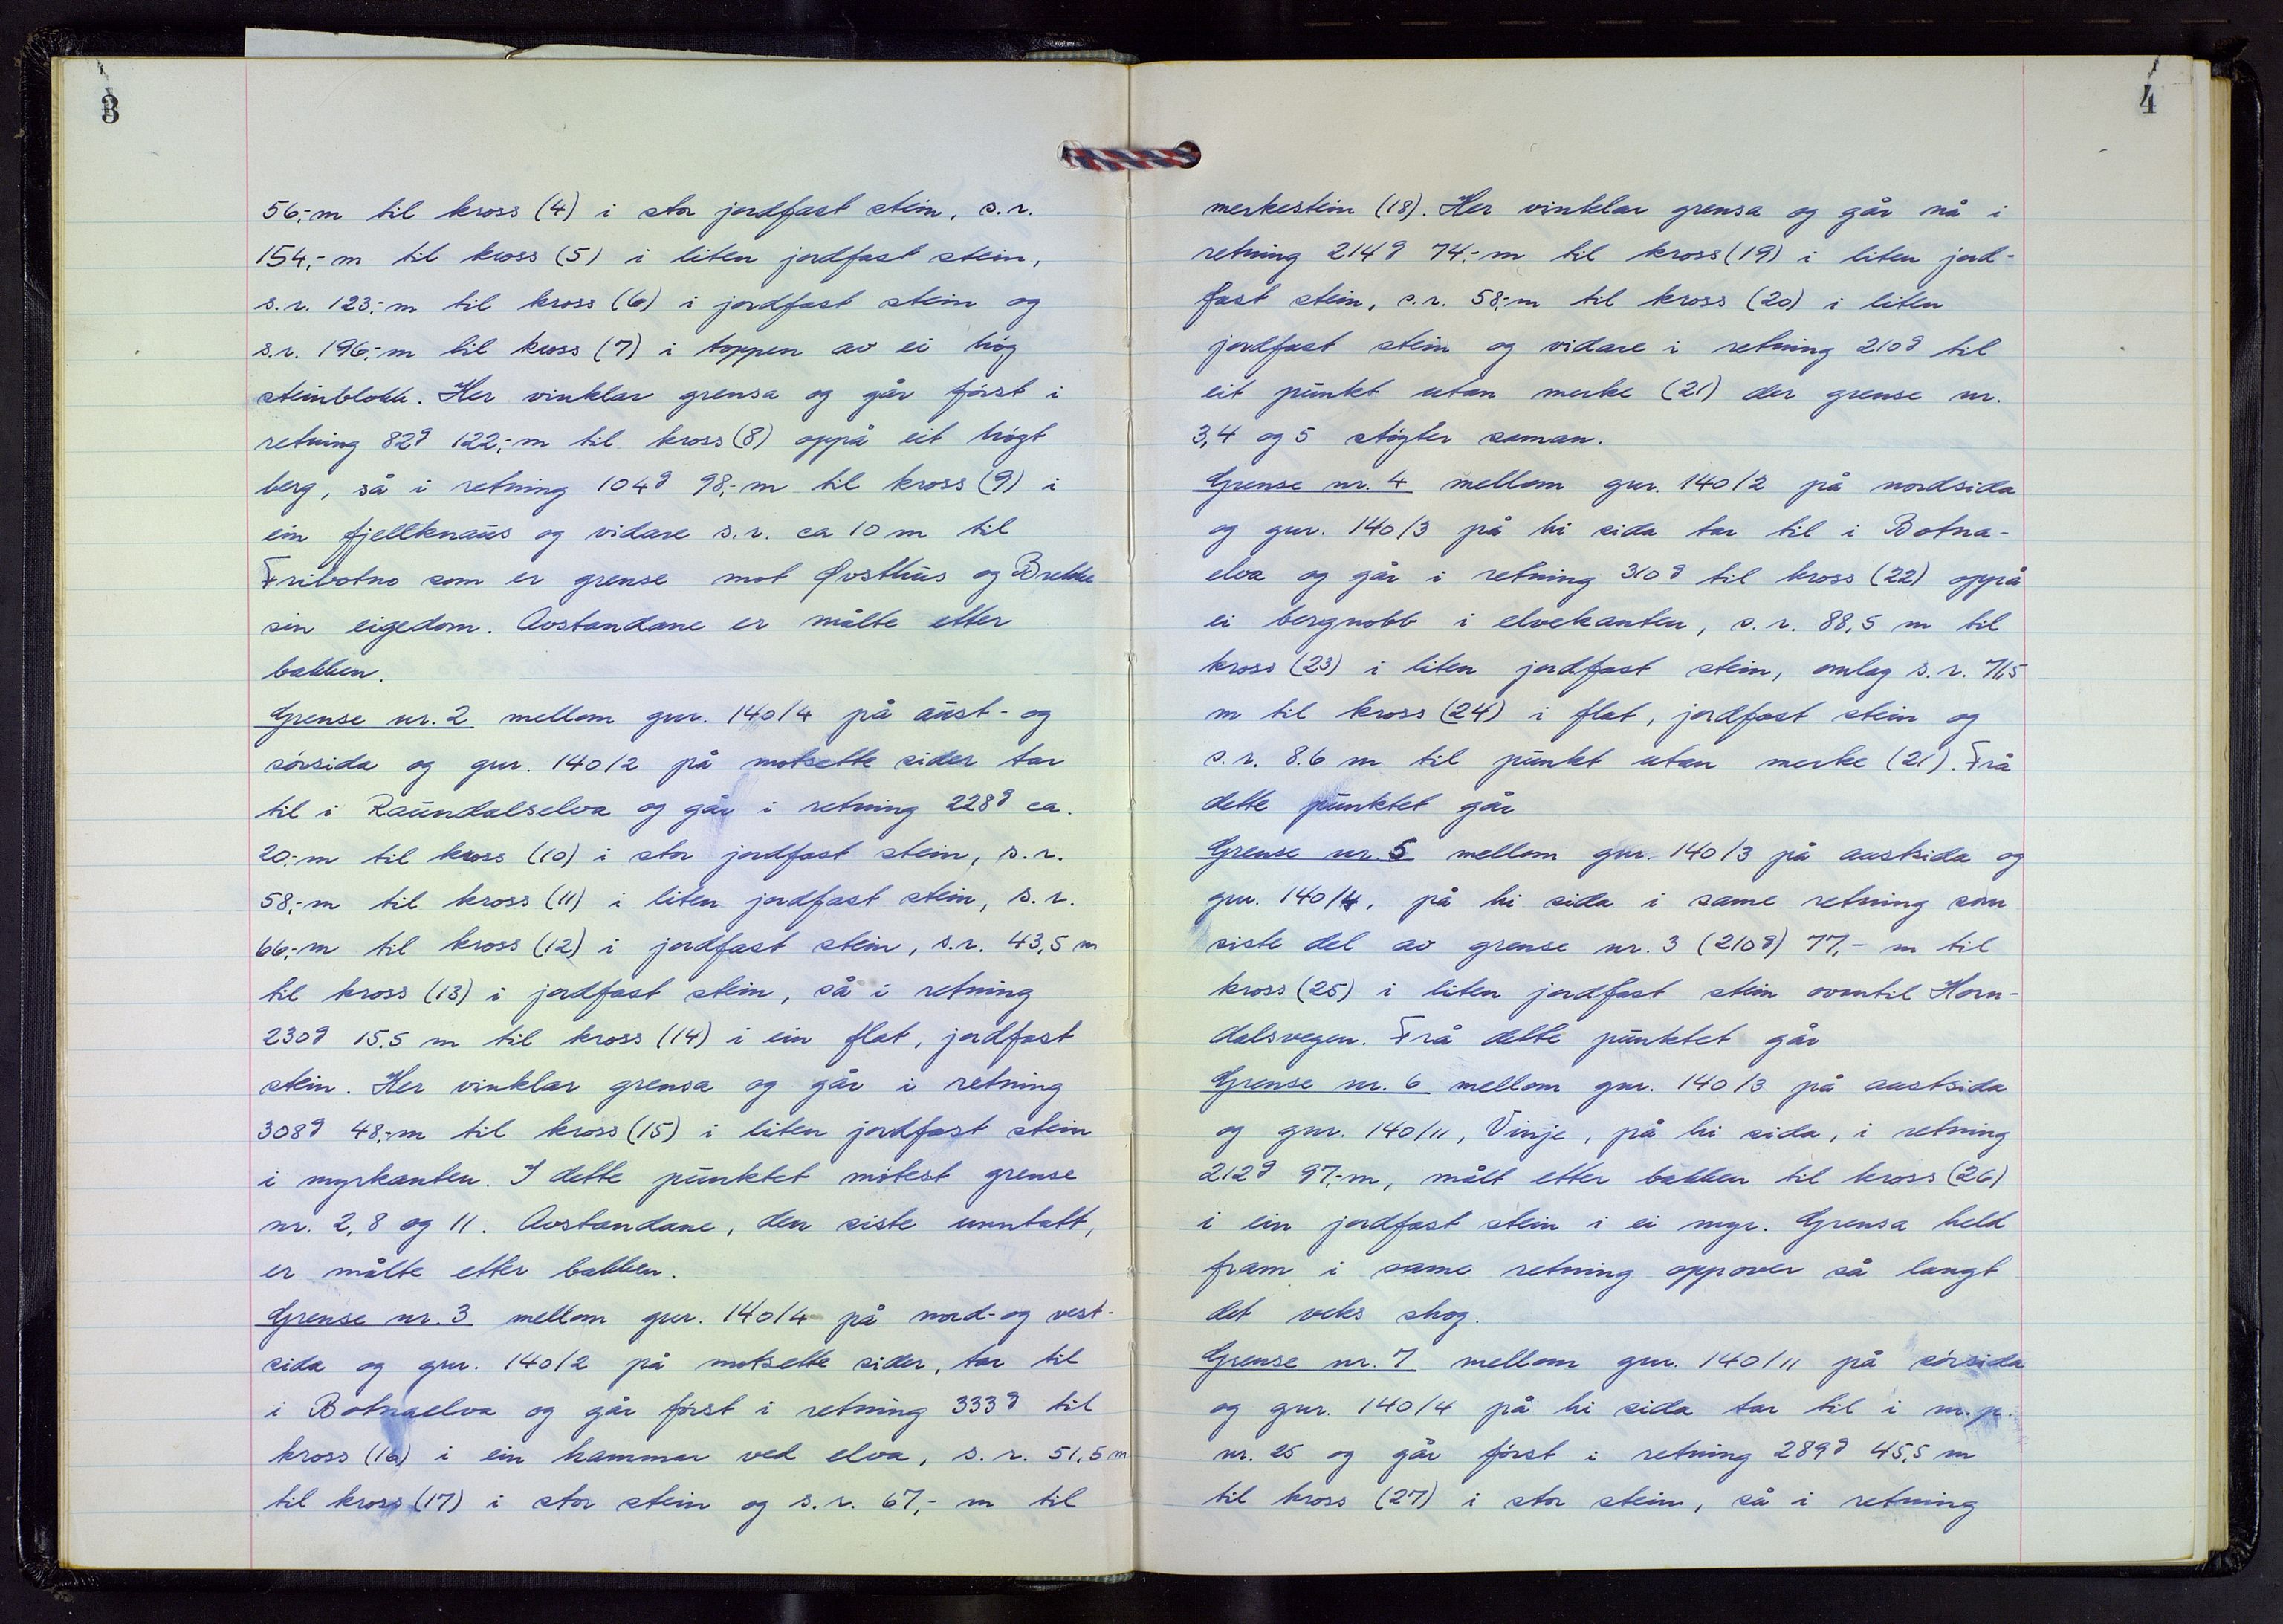 3
56,-m til kross (4) i stor jordfast stein, s.r.
154,-m til kross (5) i liten jordfast stein,
s.r. 123,-m til kross (6) i jordfast stein og
s.r. 196,-m til kross (7) i toppen av ei høg
steinblokk. Her vinklar grensa og går først i
retning 82g 122,-m til kross (8) oppå eit høgt
berg, så i retning 104g 98,-m til kross (9) i
ein fjellknaus og vidare s.r. ca 10 m til
Fribotno som er grense mot Øvsthus og Brekke
sin eigedom. Avstandane er målte etter
bakken.
Grense nr. 2 mellom gnr. 140/4 på aust- og
sørsida og gnr. 140/2 på motsette sider tar
til i Raundalselva og går i retning 228g ca.
20,-m til kross (10) i stor jordfast stein, s.r.
58,-m til kross (11) i liten jordfast stein, s.r.
66,-m til kross (12) i jordfast stein, s.r. 43,5 m
til kross (13) i jordfast stein, så i retning
230g 15,5 m til kross (14) i ein flat, jordfast
stein. Her vinklar grensa og går i retning
308g 48,-m til kross (15) i liten jordfast stein
i myrkanten. I dette punktet møtest grense
nr. 2, 8 og 11. Avstandane, den siste unntatt,
er målte etter bakken.
Grense nr. 3 mellom gnr. 140/4 på nord- og vest-
sida og gnr. 140/2 på motsette sider, tar til
i Botnaelva og går først i retning 333g til
kross (16) i ein hammar ved elva, s.r. 51,5 m
til kross (17) i stor stein og s.r. 67,- m til
4
merkestein (18). Her vinklar grensa og går nå i
retning 214g 74,-m til kross (19) i liten jord-
fast stein, s.r. 58,-m til kross (20) i liten
jordfast stein og vidare i retning 210g til
eit punkt utan merke (21) der grense nr.
3,4 og 5 støyter saman.
Grense nr. 4 mellom gnr. 140/2 på nordsida
og gnr. 140/3 på hi sida tar til i Botna-
elva og går i retning 310g til kross (22) oppå
ei bergnobb i elvekanten, s.r. 88,5 m til
kross (23) i liten jordfast stein, omlag s.r. 71,5
m til kross (24) i flat, jordfast stein og
s.r. 8.6 m til punkt utan merke (21). Frå
dette punktet går
Grense nr. 5 mellom gnr. 140/3 på austsida og
gnr. 140/4, på hi sida i same retning som
siste del av grense nr. 3 (210g) 77,- m til
kross (25) i liten jordfast stein ovantil Horn-
dalsvegen. Frå dette punktet går
Grense nr. 6 mellom gnr. 140/3 på austsida
og gnr. 140/11, Vinje, på hi sida, i retning
212g 97,-m, målt etter bakken til kross (26)
i ein jordfast stein i ei myr. Grensa held
fram i same retning oppover så langt
det veks skog.
Grense nr. 7 mellom gnr. 140/11 på sørsida
og gnr. 140/4 på hi sida tar til i m.p.
nr. 25 og går først i retning 289g 45,5 m
til kross (27) i stor stein, så i retning